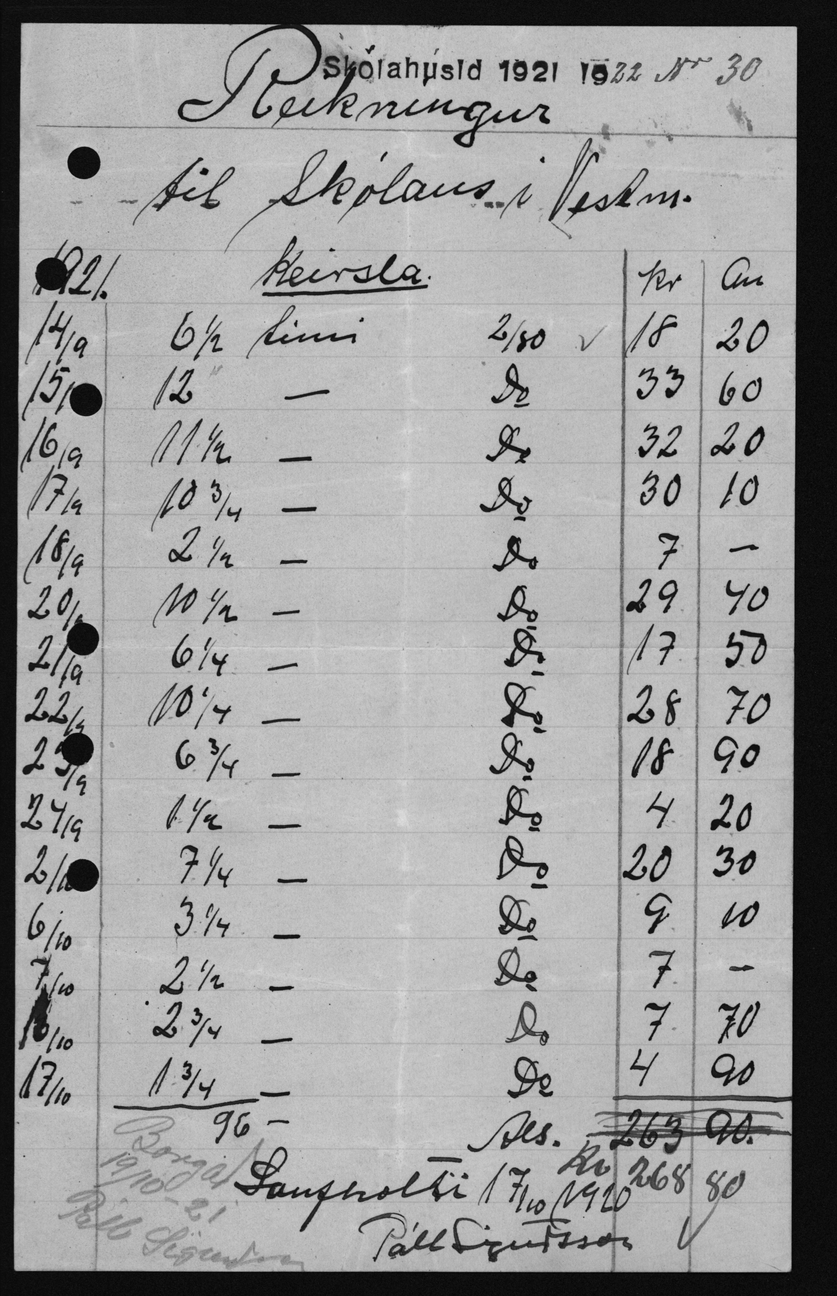 Skólahúsið 1921 1922 Nr 30
Reikningur
til Skólans í Vestm.
1921. Keirsla. kr Au
14/9 6 1/2 tími 2/80 ✓ 18 20
15/ 12 " — Do 33 60
16/9 11 1/2 — Do 32 20
17/9 10 3/4 — Do 30 10
18/9 2 1/2 — Do 7 —
20/9 10 1/2 — Do 29 40
21/9 6 1/4 — Do 17 50
22/9 10 1/4 — Do 28 70
23/9 6 3/4 — Do 18 90
24/9 1 1/2 — Do 4 20
2/10 7 1/4 — Do 20 30
6/10 3 1/4 — Do 9 10
7/10 2 1/2 — Do 7 —
/10 2 3/4 — Do 7 70
17/10 1 3/4 — Do 4 90
96 — Als. 263 90.
Kr 268 80
17/10 1920
Páll Sigurðsson
Borgað
19/10-21
Páll Sigurðsson